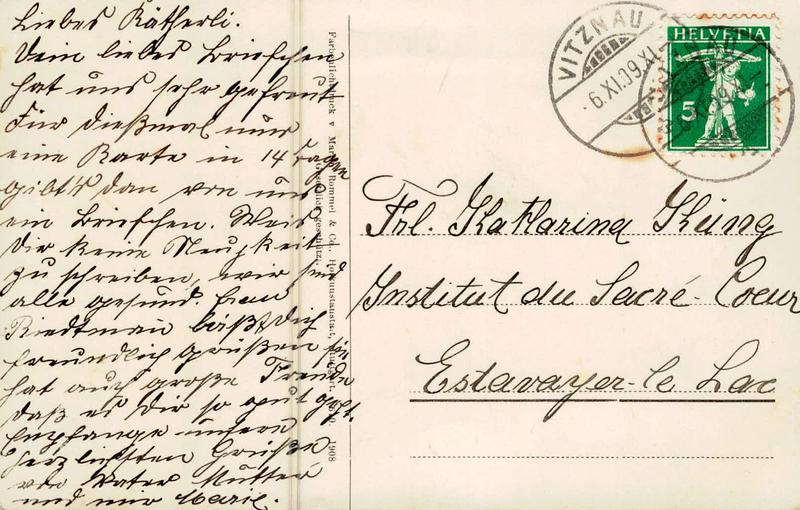 Liebes Kätherli.
Dein liebes Briefchen
hat uns sehr gefreut
Für dießmal nur
eine Karte in 14 Tagen
gibt's dan von uns
ein Briefchen. Weis
Dir keine Neuigkeit
zu schreiben, wir sind
alle gesund. Frau
Riedtman läßt Dich
freundlich grüßen sie
hat auch große Freude
daß es Dir so gut geht.
Empfange unsere
herzlichsten Grüßen
von Vater Mutter
und mir Marie.
Farbenlichtdruck v. Rommel & Co.,
1908
VITZNAU
-6.XI.09.XI-
HELVETIA
5
Frl. Katharina Küng
Institut du Sacré-Coeur
Estavayer-le Lac